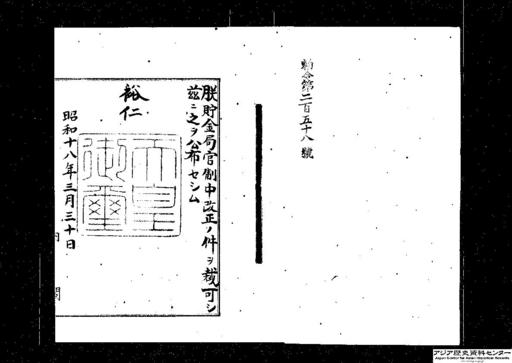 勅令第二百五十八號
朕貯金局官制中改正ノ件ヲ裁可シ
茲ニ之ヲ公布セシム
裕仁
天皇
御璽
昭和十八年三月三十日
アジア歴史資料センター
Japan Center for Asian Historical Records